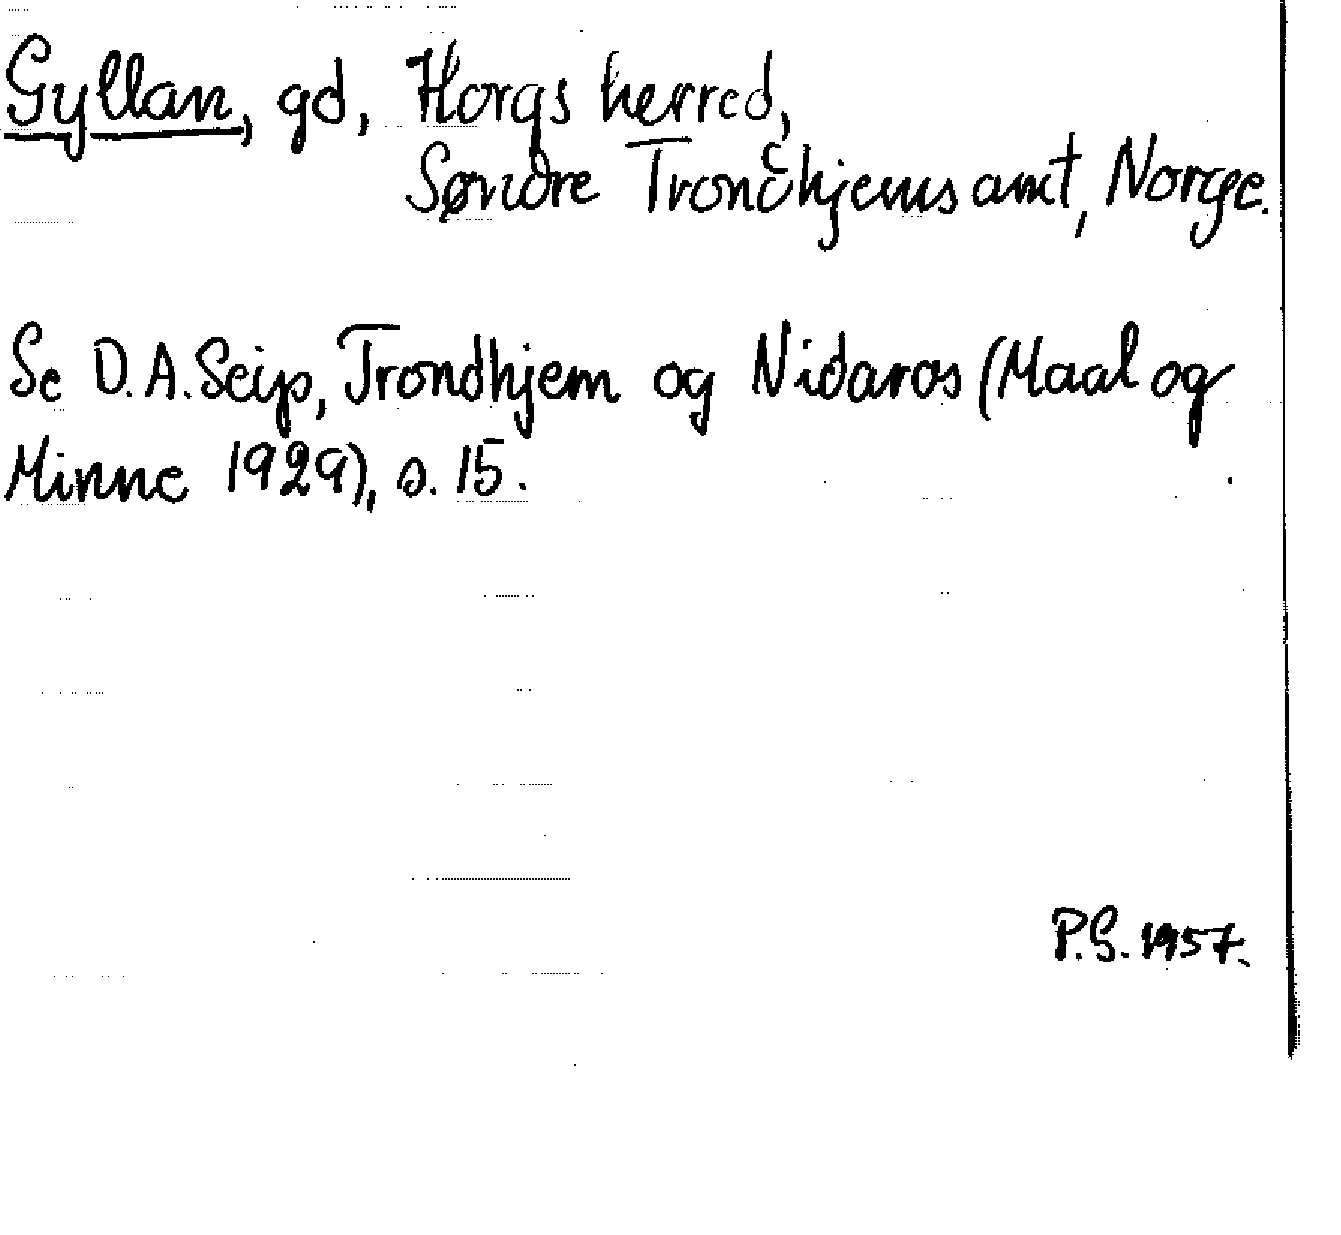 Gyllan, gd, Horgs herred,
Søndre Trondhjems amt, Norge.
Se D.A. Seip, Trondhjem og Nidaros (Maal og
Minne 1929), s. 15.
P.S. 1957.